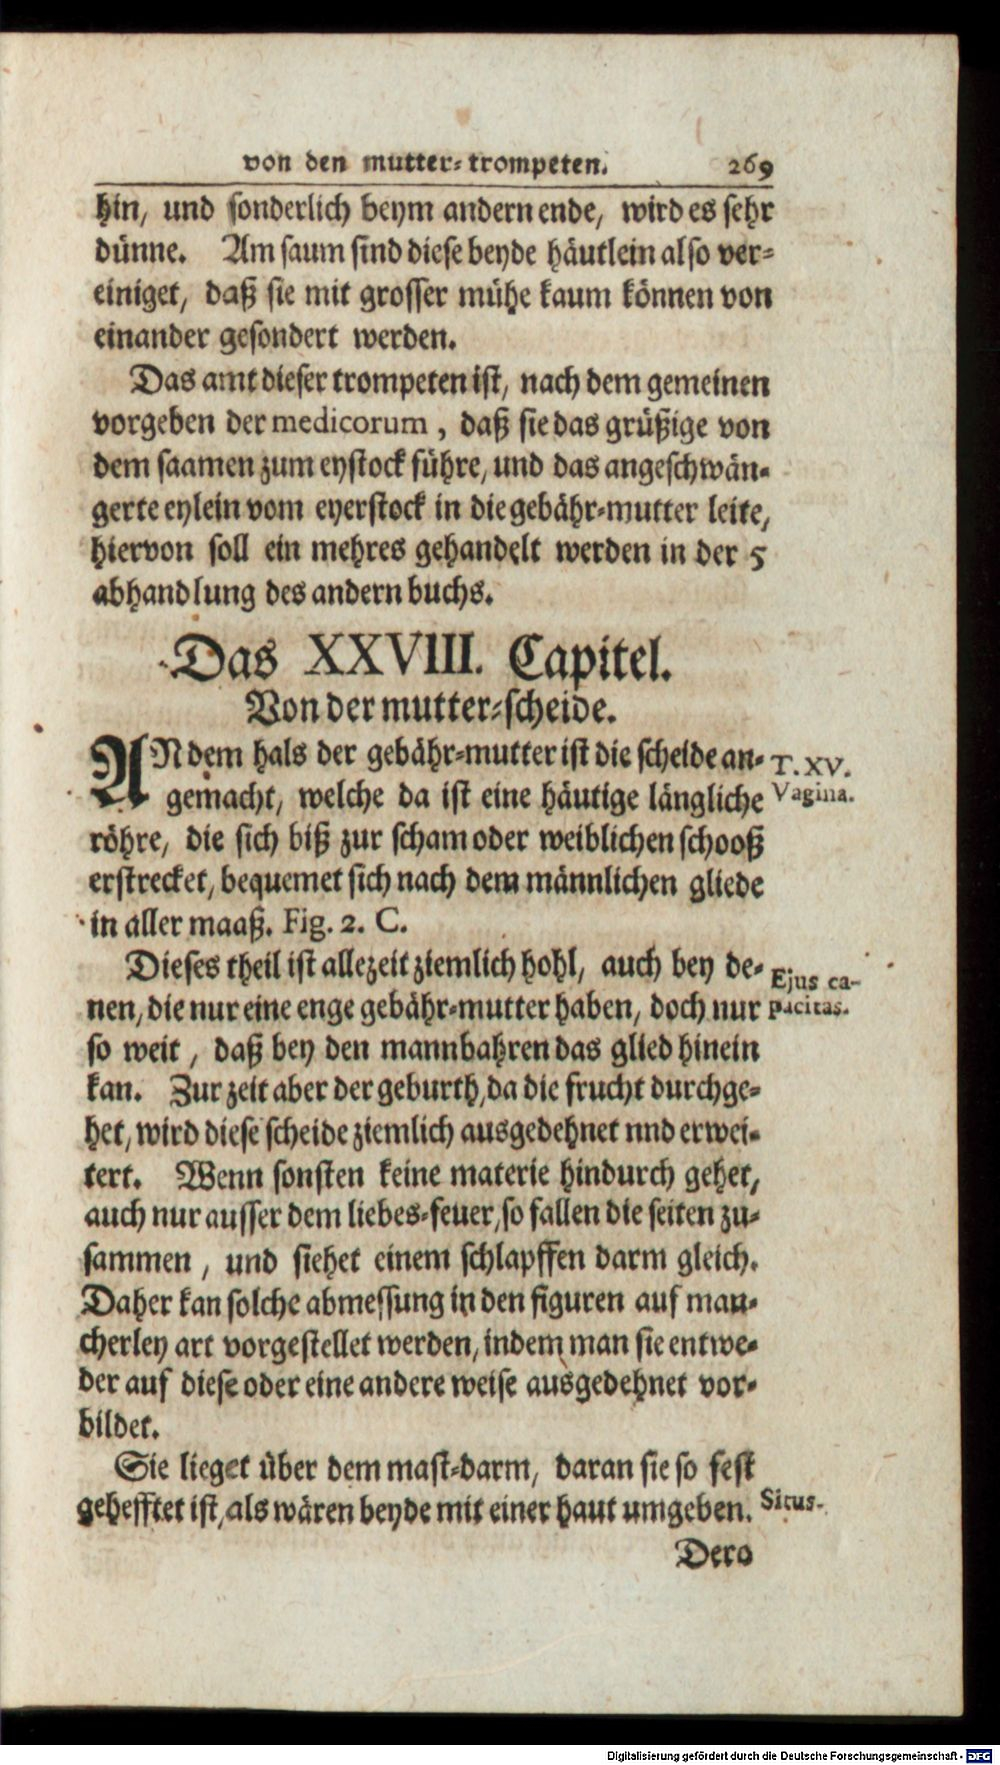 von den mutter-trompeten. 269
hin, und sonderlich beym andern ende, wird es sehr
dünne. Am saum sind diese beyde häutlein also ver-
einiget, daß sie mit grosser mühe kaum können von
einander gesondert werden.
Das amt dieser trompeten ist, nach dem gemeinen
vorgeben der medicorum, daß sie das grüßige von
dem saamen zum eystock führe, und das angeschwän-
gerte eylein vom eyerstock in die gebähr-mutter leite,
hiervon soll ein mehres gehandelt werden in der 5
abhandlung des andern buchs.
Das XXVIII. Capitel.
Von der mutter-scheide.
ANdem hals der gebähr-mutter ist die scheide an-
T. XV.
gemacht, welche da ist eine häutige längliche
Vagina.
röhre, die sich biß zur scham oder weiblichen schooß
erstrecket, bequemet sich nach dem männlichen gliede
in aller maaß. Fig. 2. C.
Dieses theil ist allezeit ziemlich hohl, auch bey de-
Ejus ca-
nen, die nur eine enge gebähr-mutter haben, doch nur
pacitas.
so weit, daß bey den mannbahren das glied hinein
kan. Zur zeit aber der geburth, da die frucht durchge-
het, wird diese scheide ziemlich ausgedehnet nnd erwei-
tert. Wenn sonsten keine materie hindurch gehet,
auch nur ausser dem liebes-feuer, so fallen die seiten zu-
sammen, und siehet einem schlapffen darm gleich.
Daher kan solche abmessung in den figuren auf man-
cherley art vorgestellet werden, indem man sie entwe-
der auf diese oder eine andere weise ausgedehnet vor-
bildet.
Sie lieget über dem mast-darm, daran sie so fest
gehefftet ist, als wären beyde mit einer haut umgeben.
Situs.
Dero
Digitalisierung gefördert durch die Deutsche Forschungsgemeinschaft - DFG